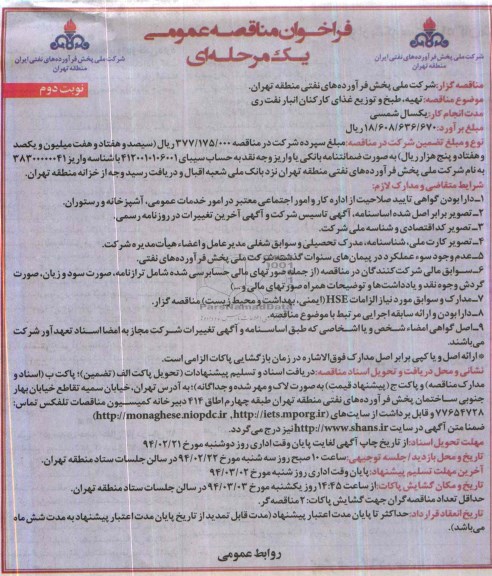 فراخوان مناقصه عمومی
یک مرحله‌ای
شرکت ملی پخش فرآورده‌های نفتی ایران
منطقه تهران
شرکت ملی پخش فرآورده‌های نفتی ایران
منطقه تهران
نوبت دوم
مناقصه گزار: شرکت ملی پخش فرآورده‌های نفتی منطقه تهران.
موضوع مناقصه: تهیه، طبخ و توزیع غذای کارکنان انبار نفت ری
مدت انجام کار: یکسال شمسی
مبلغ برآورد: ۱۸/۶۰۸/۶۳۶/۶۷۰ ریال
نوع و مبلغ تضمین شرکت در مناقصه: مبلغ سپرده شرکت در مناقصه ۳۷۷/۱۷۵/۰۰۰ ریال (سیصد و هفتاد و هفت میلیون و یکصد
و هفتاد و پنج هزار ریال) به صورت ضمانتنامه بانکی یا واریز وجه نقد به حساب سیبای ۴۱۲۰۰۱۰۱۰۶۰۰۱ با شناسه واریز ۳۸۳۰۰۰۰۰۰۴۱
به نام شرکت ملی پخش فرآورده‌های نفتی منطقه تهران نزد بانک ملی شعبه اقبال و دریافت رسید وجه از خزانه منطقه تهران.
شرایط متقاضی و مدارک لازم:
۱ـ دارا بودن گواهی تایید صلاحیت از اداره کار و امور اجتماعی معتبر در امور خدمات عمومی، آشپزخانه و رستوران.
۲ـ تصویر برابر اصل شده اساسنامه، آگهی تاسیس شرکت و آگهی آخرین تغییرات در روزنامه رسمی.
۳ـ تصویر کد اقتصادی و شناسه ملی شرکت.
۴ـ تصویر کارت ملی، شناسنامه، مدرک تحصیلی و سوابق شغلی مدیرعامل و اعضاء هیأت مدیره شرکت.
۵ـ عدم وجود سوء عملکرد در پیمان‌های سنوات گذشته شرکت ملی پخش فرآورده‌های نفتی.
۶ـ سوابق مالی شرکت کنندگان در مناقصه (از جمله صورتهای مالی حسابرسی شده شامل ترازنامه، صورت سود و زیان، صورت
گردش وجوه نقد و یادداشت‌ها و توضیحات همراه صورتهای مالی و...)
۷ـ مدارک و سوابق مورد نیاز الزامات HSE (ایمنی، بهداشت و محیط زیست) مناقصه گزار.
۸ـ دارا بودن و ارائه سابقه اجرایی مرتبط با موضوع مناقصه.
۹ـ اصل گواهی امضاء شخص و یا اشخاصی که طبق اساسنامه و آگهی تغییرات شرکت مجاز به امضا اسناد تعهدآور شرکت
می‌باشند.
* ارائه اصل و یا کپی برابر اصل مدارک فوق الاشاره در زمان بازگشایی پاکات الزامی است.
نشانی و محل دریافت و تحویل اسناد مناقصه: دریافت اسناد و تسلیم پیشنهادات (تحویل پاکت الف (تضمین)؛ پاکت ب (اسناد و
مدارک مناقصه) و پاکت ج (پیشنهاد قیمت) به صورت لاک و مهر شده و جداگانه): به آدرس تهران، خیابان سمیه تقاطع خیابان بهار
جنوبی ساختمان پخش فرآورده‌های نفتی منطقه تهران طبقه چهارم اطاق ۴۱۴ دبیرخانه کمیسیون مناقصات تلفکس تماس:
۷۷۶۵۴۷۲۸ و قابل برداشت از سایت‌های (http://monaghese.niopdc.ir ,http://iets.mporg.ir)
ضمنا متن آگهی در سایت http://www.shans.ir نیز درج می‌گردد.
مهلت تحویل اسناد: از تاریخ چاپ آگهی لغایت پایان وقت اداری روز دوشنبه مورخ ۹۴/۰۲/۲۱
تاریخ و محل بازدید / جلسه توجیهی: ساعت ۱۰ صبح روز سه شنبه مورخ ۹۴/۰۲/۲۲ در سالن جلسات ستاد منطقه تهران.
آخرین مهلت تسلیم پیشنهاد: پایان وقت اداری روز شنبه مورخ ۹۴/۰۳/۰۲
تاریخ و مکان گشایش پاکات: از ساعت ۱۴:۴۵ روز یکشنبه مورخ ۹۴/۰۳/۰۳ در سالن جلسات ستاد منطقه تهران.
حداقل تعداد مناقصه گران جهت گشایش پاکات: ۲ مناقصه گر.
تاریخ انعقاد قرارداد: حداکثر تا پایان مدت اعتبار پیشنهاد (مدت قابل تمدید از تاریخ پایان مدت اعتبار پیشنهاد به مدت شش ماه
می‌باشد).
روابط عمومی